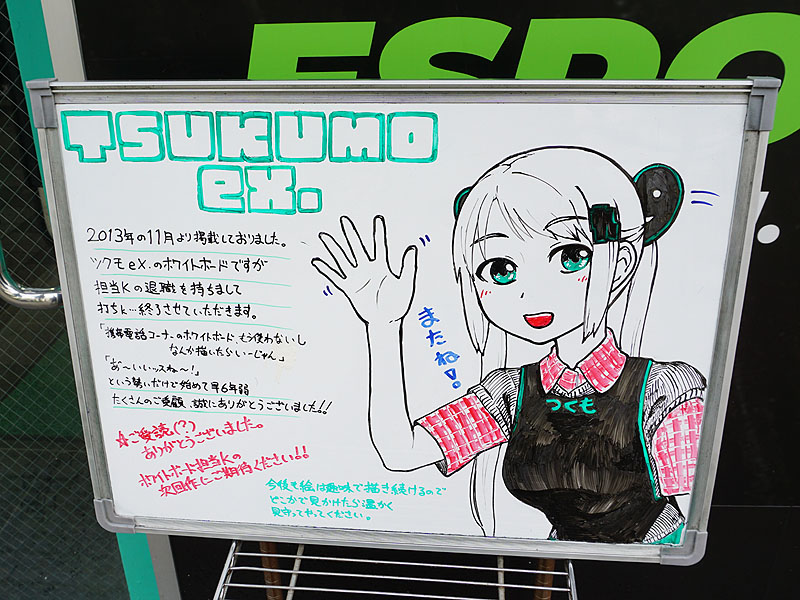 ESPO
TSUKUMO
eX.
2013年の11月より掲載しておりました。
ツクモeX.のホワイトボードですが
担当Kの退職を持ちまして
打ちk…終了させていただきます。
「携帯電話コーナーのホワイトボード、もう使わないし
なんか描いたらいーじゃん」
「あ〜いいッスね〜!」
という勢いだけで始めて早6年弱
たくさんのご愛顧、誠にありがとうございました!!
☆ご愛読(?)
ありがとうございました。
ホワイトボード担当Kの
次回作にご期待ください!!
またね!
つくも
今後も絵は趣味で描き続けるので
どこかで見かけたら温かく
見守ってやってください。